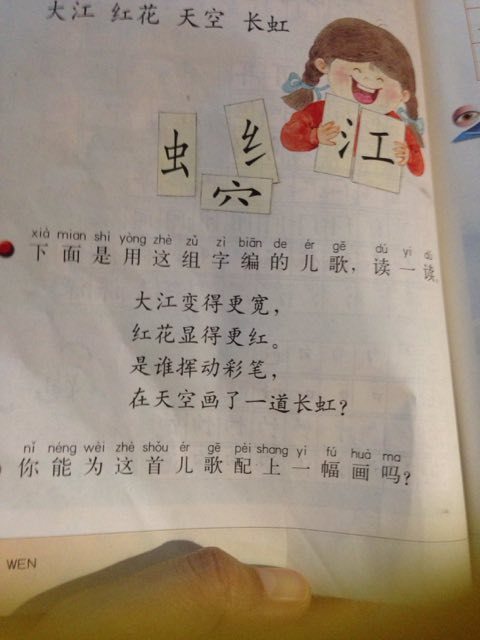 大江 红花 天空 长虹
虫 纟 氵工
穴
xià miàn shì yòng zhè zǔ zì biān de ér gē dú yi dú
下面是用这组字编的儿歌，读一读。
大江变得更宽，
红花显得更红。
是谁挥动彩笔，
在天空画了一道长虹？
nǐ néng wèi zhè shǒu ér gē pèi shang yì fú huà ma
你能为这首儿歌配上一幅画吗？
WEN